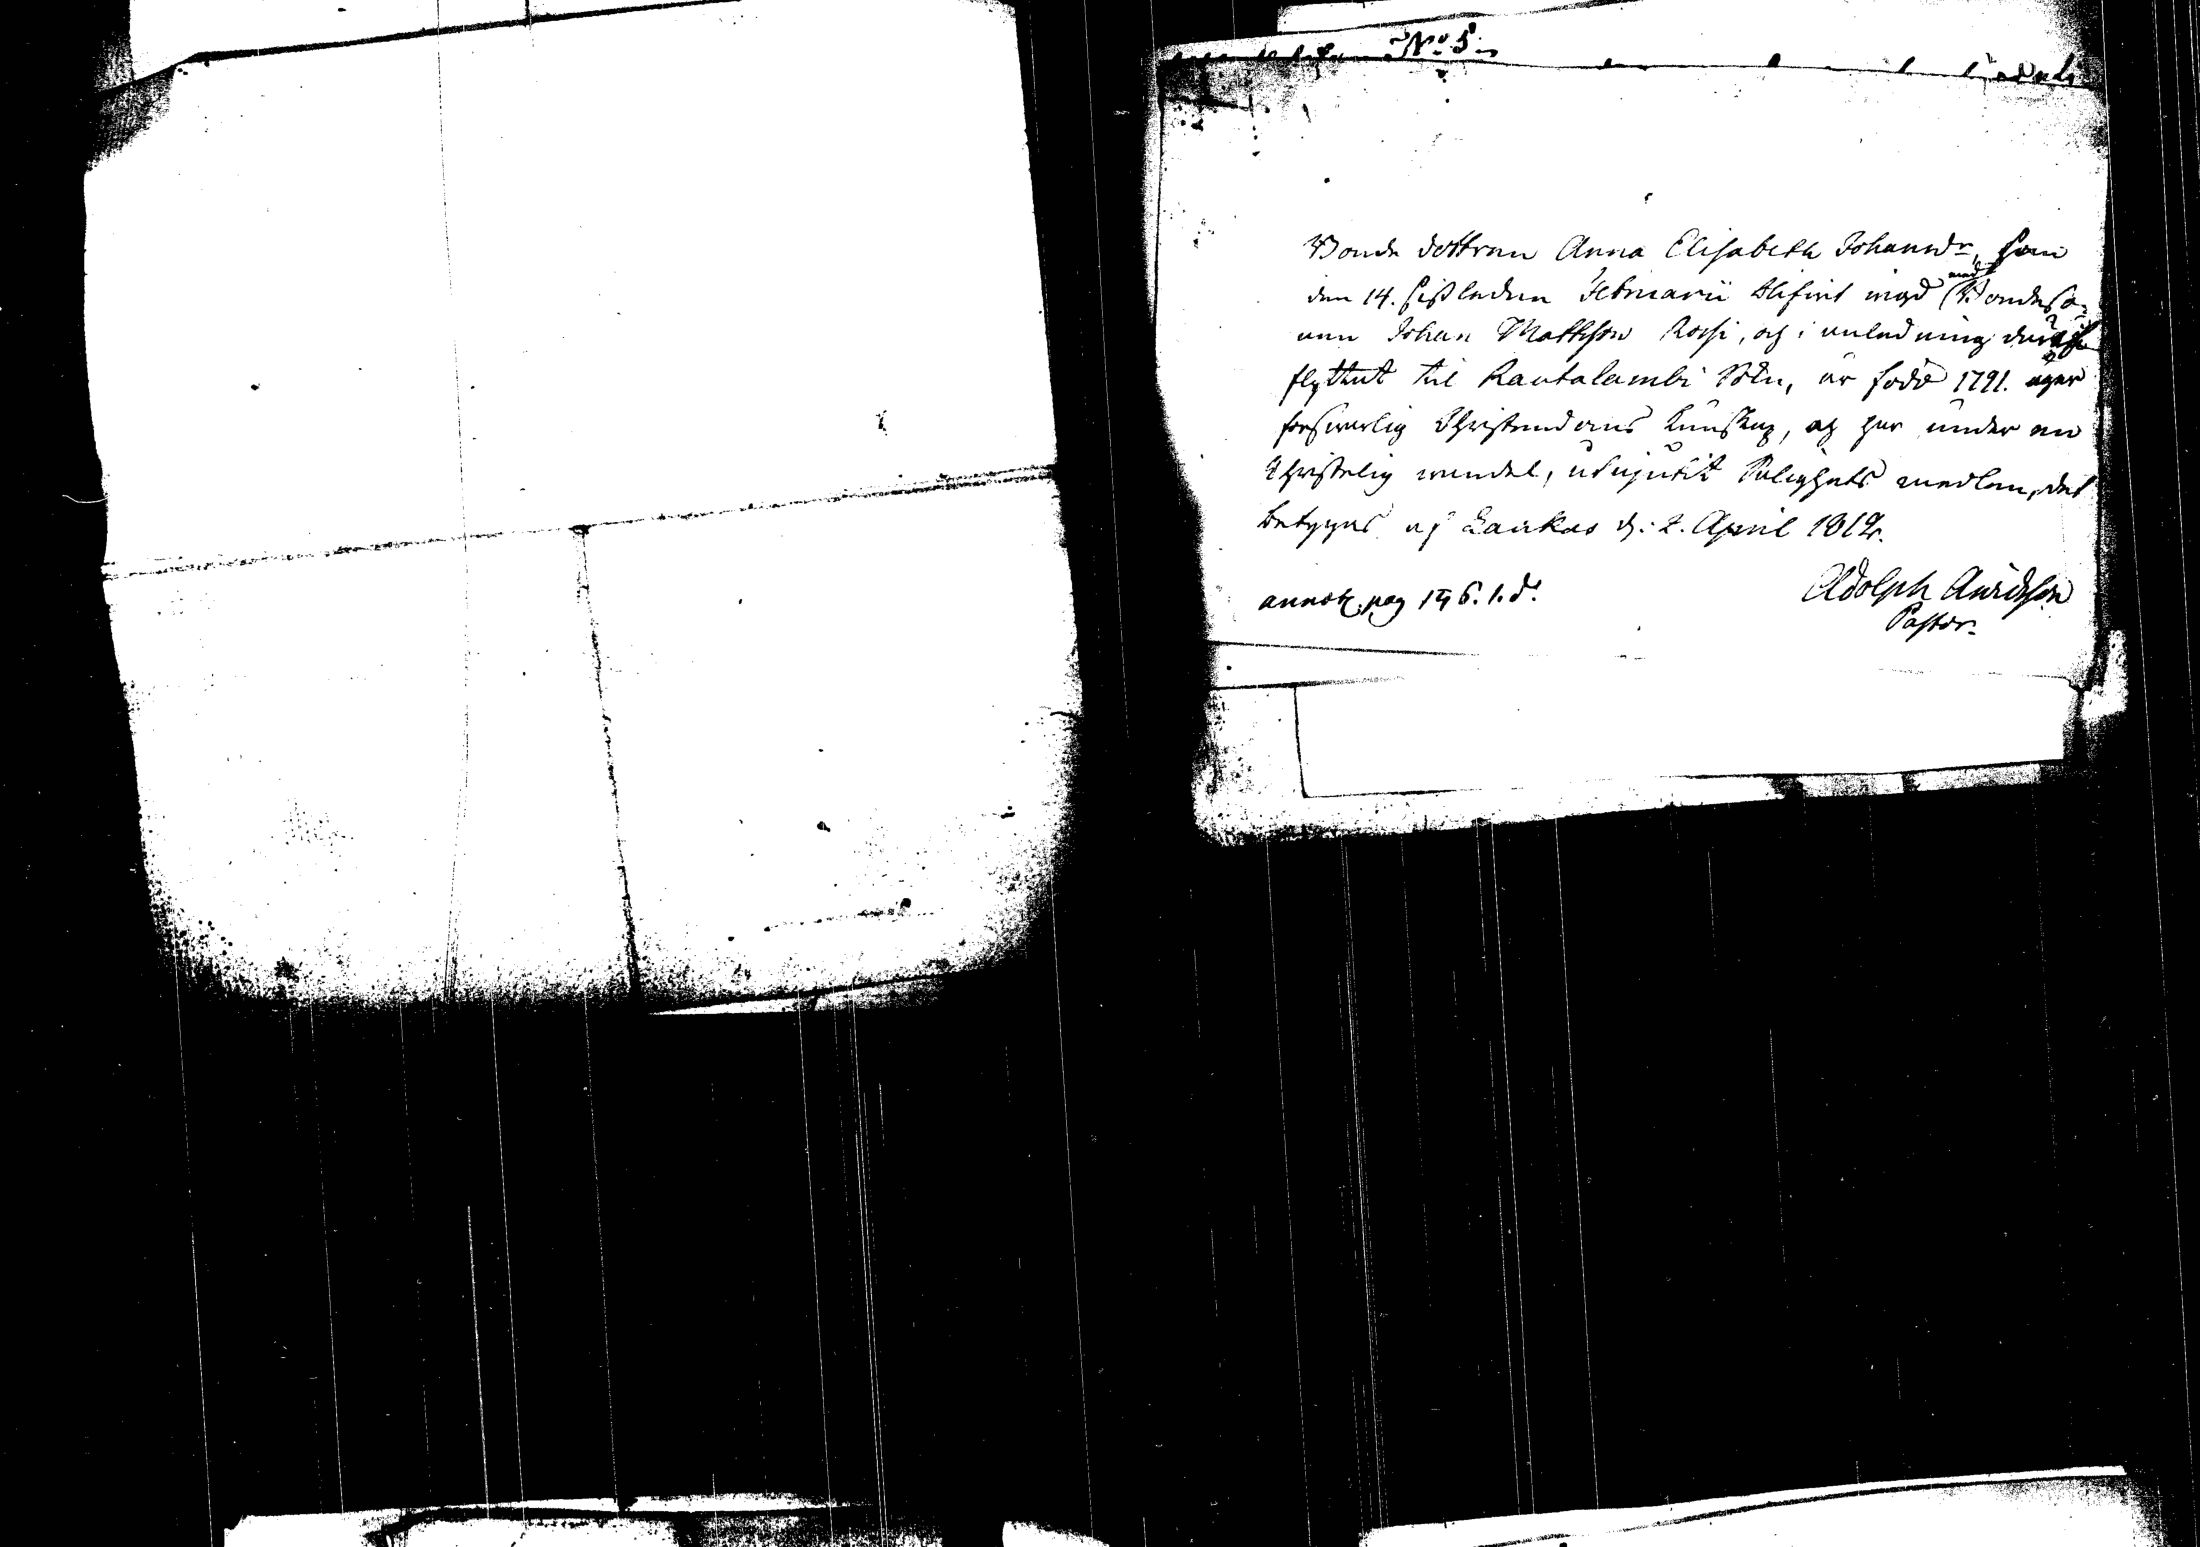 No 5.
Bonde dottren Anna Elisabeth Johansdr, som
den 14. sistleden Februarii blifvit wigd med Bondeso-
nen Johan Mattsson Rossi, och i anledning deraf
flyttat til Rautalambi Sokn, är född 1791. äger
forsvarlig Christendoms kunskap, och har under en
Christelig wandel, utnjutit Salighets medlen, det
betygas af Laukas d. 2. April 1812.
annot. pag 196. 1. d.
Adolph Auridsson
Pastor.